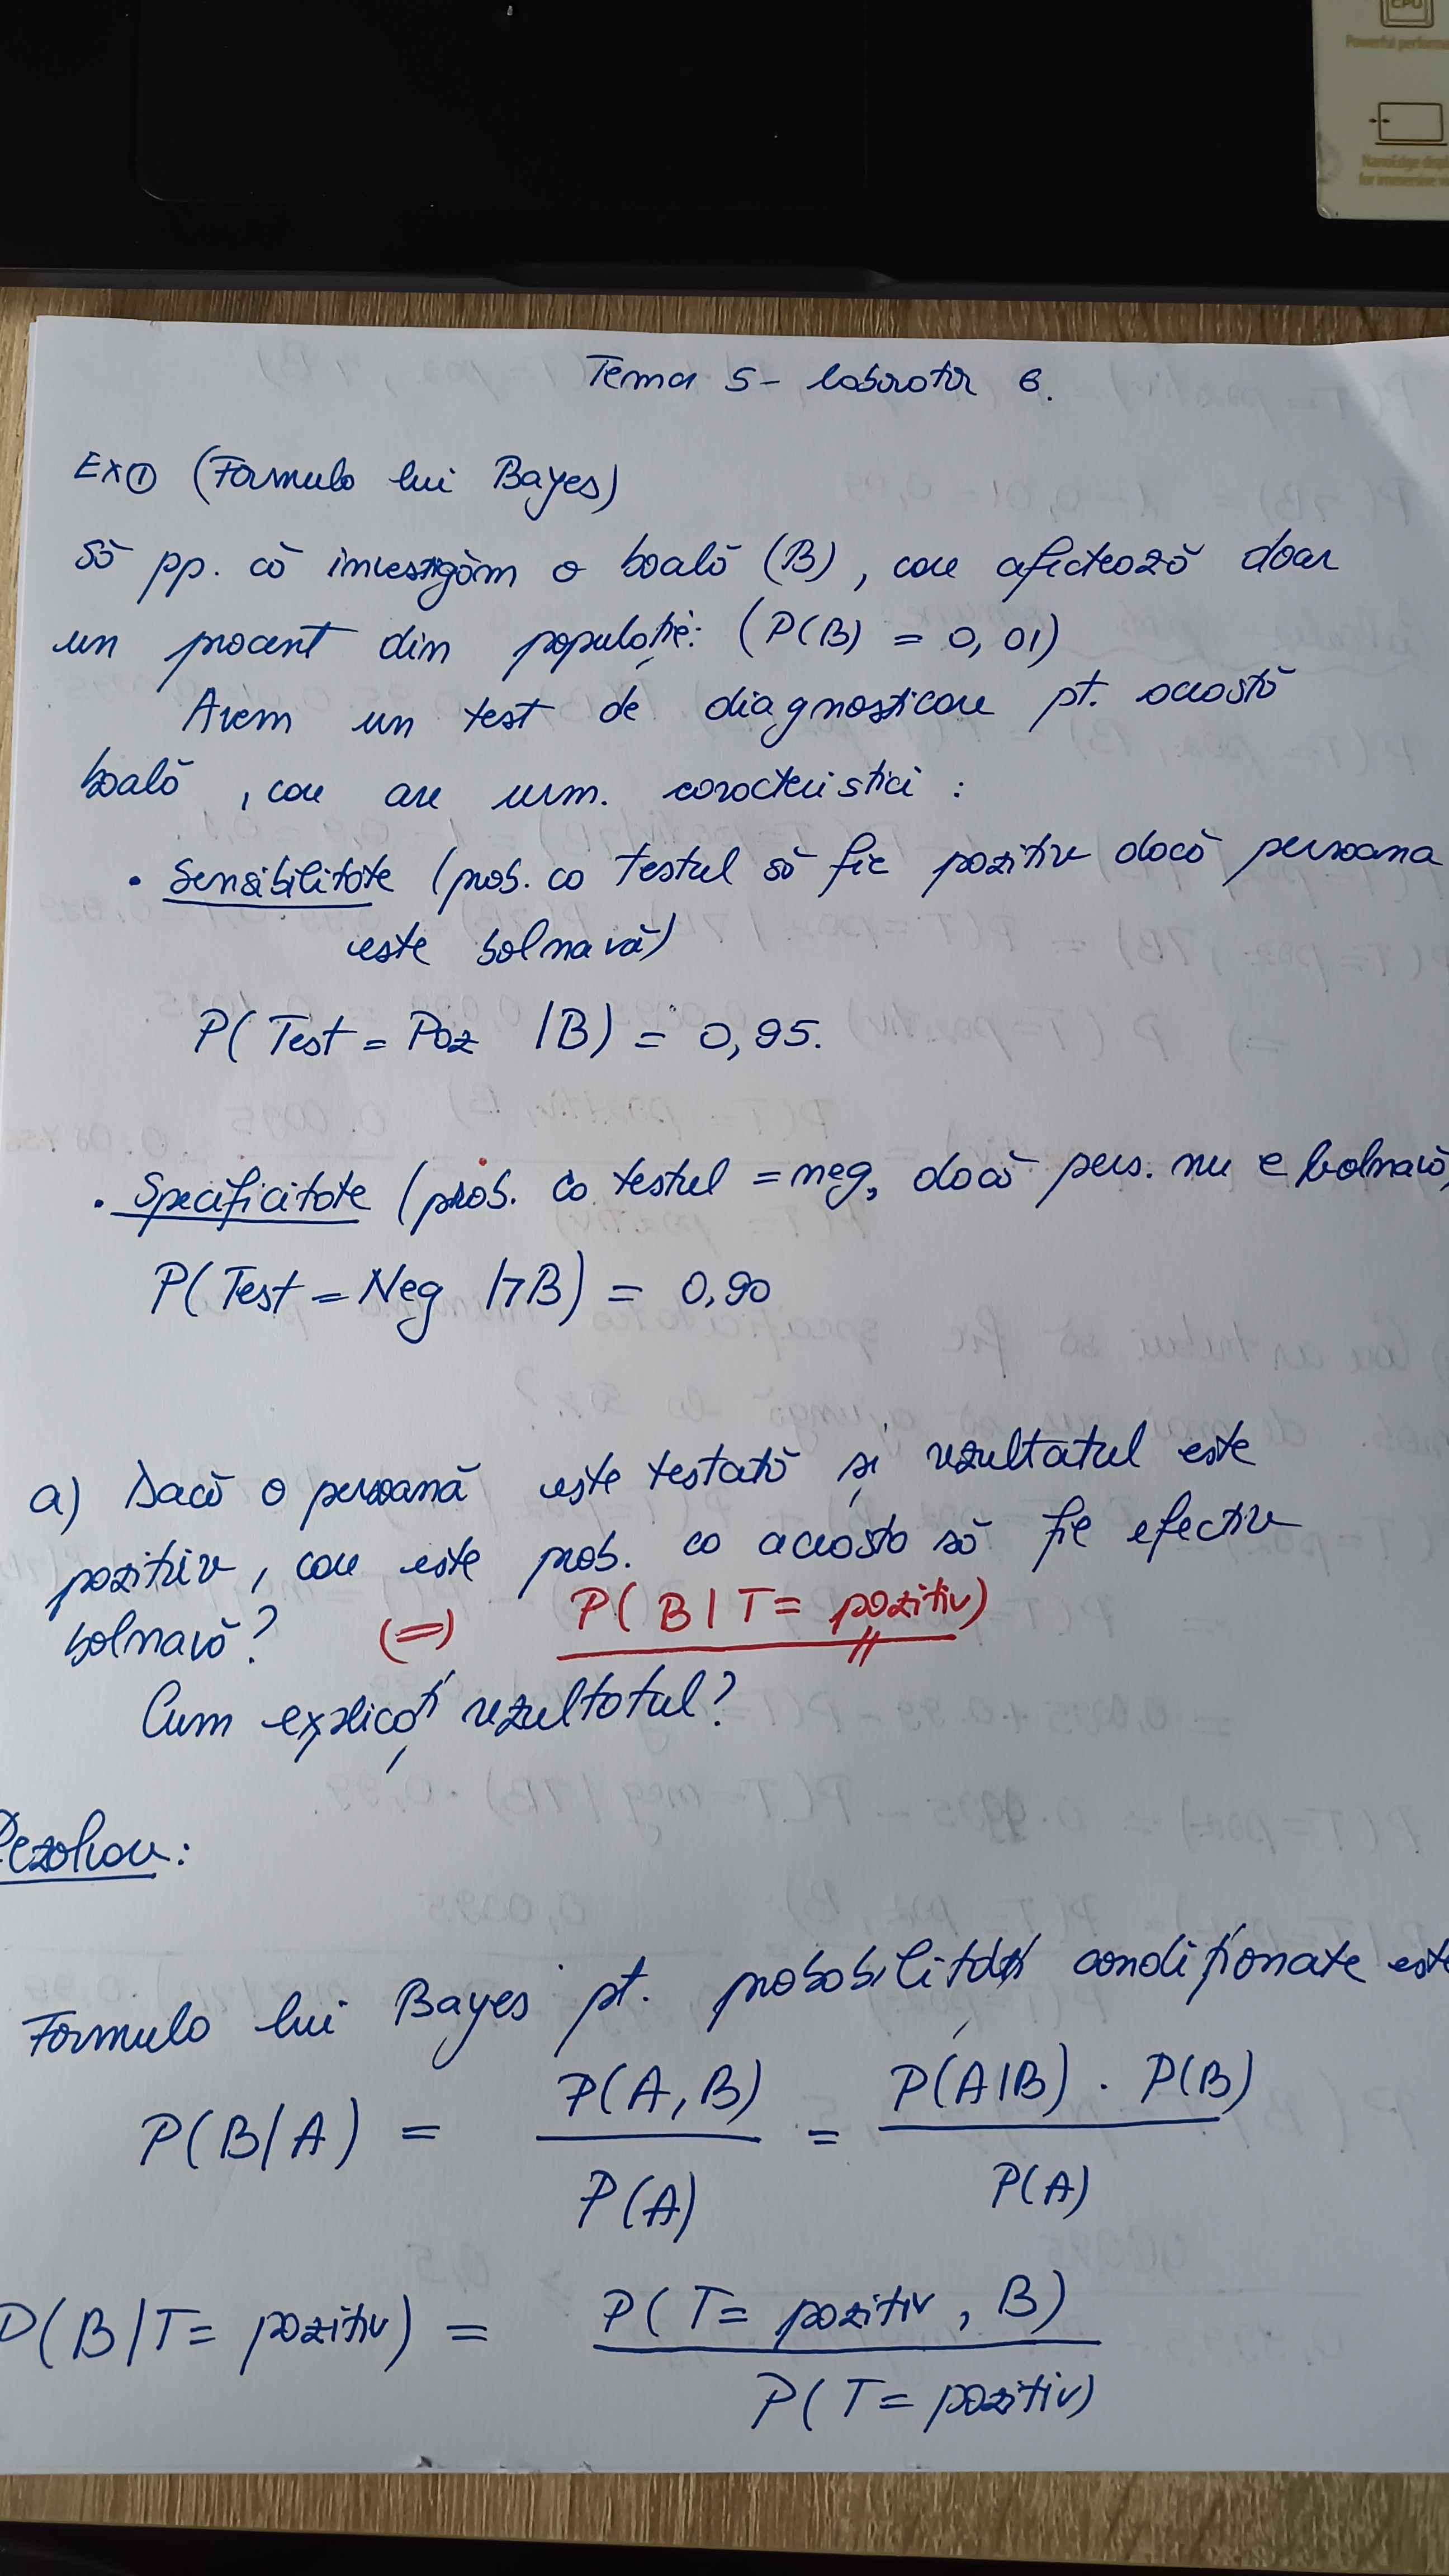 CPU
Powerful performa
NanoEdge disp
for immersive vi
Tema 5 - laborator 6.
Ex① (Formula lui Bayes)
Să pp. că investigăm o boală (B), care afectează doar
un procent din populație: (P(B) = 0,01)
Avem un test de diagnosticare pt. această
boală, care are urm. caracteristici :
• Sensibilitate (prob. ca testul să fie pozitiv dacă persoana
este bolnavă)
P(Test = Poz | B) = 0,95.
• Specificitate (prob. ca testul = neg, dacă pers. nu e bolnavă)
P(Test = Neg | ⌐B) = 0,90
a) Dacă o persoană este testată și rezultatul este
pozitiv, care este prob. ca aceasta să fie efectiv
bolnavă? (=) P( B | T = pozitiv)
Cum explicați rezultatul?
Rezolvare:
Formula lui Bayes pt. probabilități condiționate este
P(B|A) = P(A,B) / P(A) = P(A|B) · P(B) / P(A)
P(B|T= pozitiv) = P(T= pozitiv, B) / P(T= pozitiv)